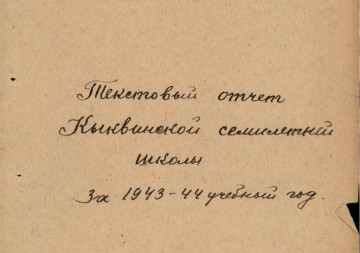 Текстовый отчет
Кыквинской семилетней
школы
за 1943-44 учебный год.